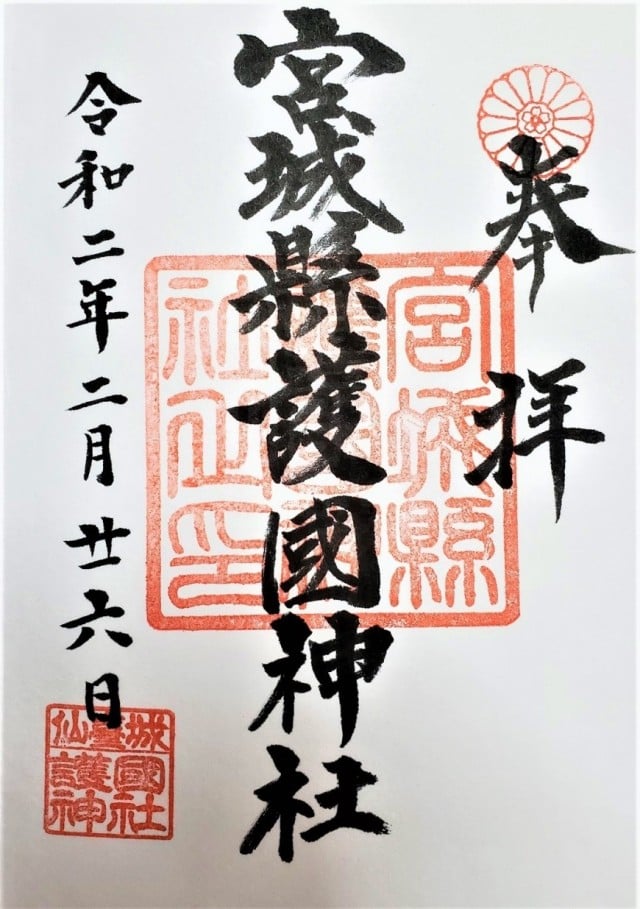 奉拝
宮城縣護國神社
令和二年二月廿六日
宮城縣
護國神
社之印
仙臺城
護國
神社